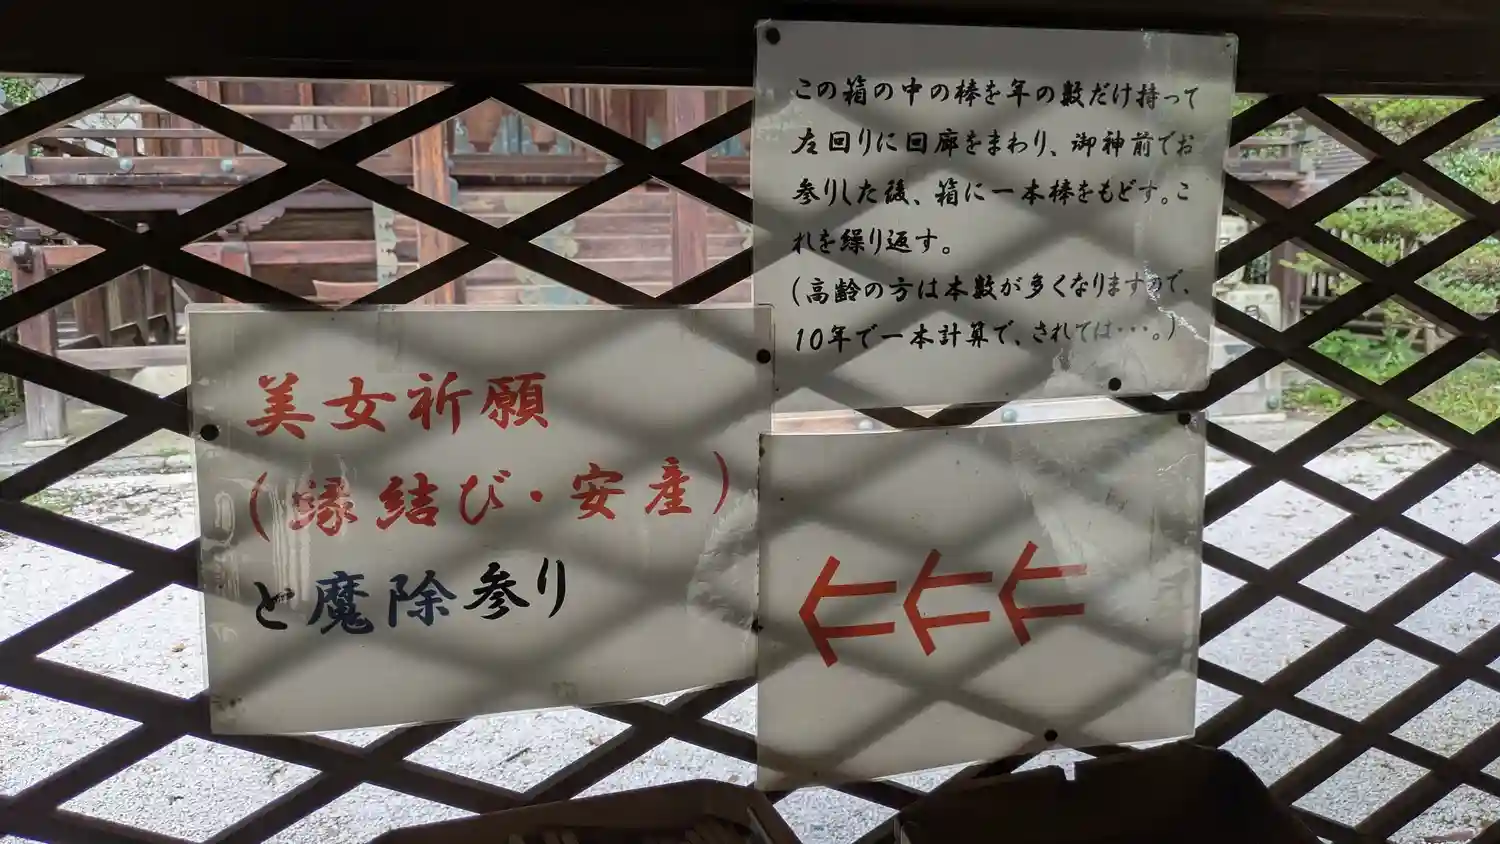 この箱の中の棒を年の数だけ持って
左回りに回廊をまわり、御神前でお
参りした後、箱に一本棒をもどす。こ
れを繰り返す。
(高齢の方は本数が多くなりますので、
10年で一本計算で、されては・・・。)
美女祈願
(縁結び・安産)
と魔除参り